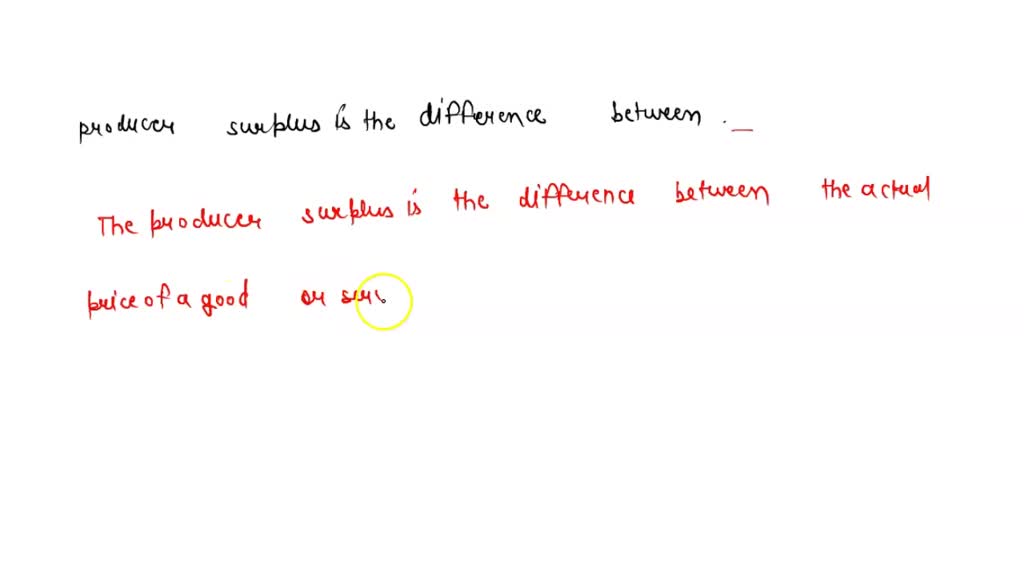 producer surplus is the difference between . _
The producer surplus is the difference between the actual
price of a good or serv